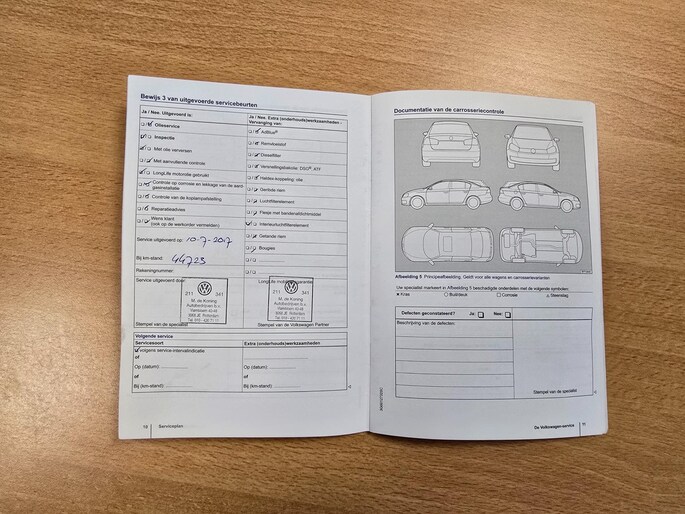 Bewijs 3 van uitgevoerde servicebeurten
Ja / Nee. Uitgevoerd is:
Olieservice
Inspectie
Met olie verversen
Met aanvullende controle
LongLife motorolie gebruikt
Controle op corrosie en lekkage van de aard-
gasinstallatie
Controle van de koplampafstelling
Reparatieadvies
Wens klant
(ook op de werkorder vermelden)
Service uitgevoerd op: 10-7-2017
Bij km-stand: 44723
Rekeningnummer:
Service uitgevoerd door:
211 341
M. de Koning
Stempel van de specialist
Ja / Nee. Extra (onderhouds)werkzaamheden -
Vervanging van:
AdBlue®
Remvloeistof
Dieselfilter
Versnellingsbakolie: DSG®, ATF
Haldex-koppeling: olie
Getande riem
Luchtfilterelement
Flesje met bandenafdichtmiddel
Interieurluchtfilterelement
Getande riem
Bougies
LongLife motoroliegarantie:
211 341
M. de Koning
Stempel van de Volkswagen Partner
Volgende service
Servicesoort
Extra (onderhouds)werkzaamheden
volgens service-intervalindicatie
of
Op (datum)
of
Bij (km-stand)
of
Op (datum)
of
Bij (km-stand)
Serviceplan
Documentatie van de carrosseriecontrole
Afbeelding 5 Principeafbeelding: Geldt voor alle wagens en carrosserievarianten
Uw specialist markeert in Afbeelding 5 beschadigde onderdelen met de volgende symbolen:
× Kras ○ Buil/deuk □ Corrosie △ Steenslag
Defecten geconstateerd? Ja Nee
Beschrijving van de defecten:
Stempel van de specialist
De Volkswagen-service 11